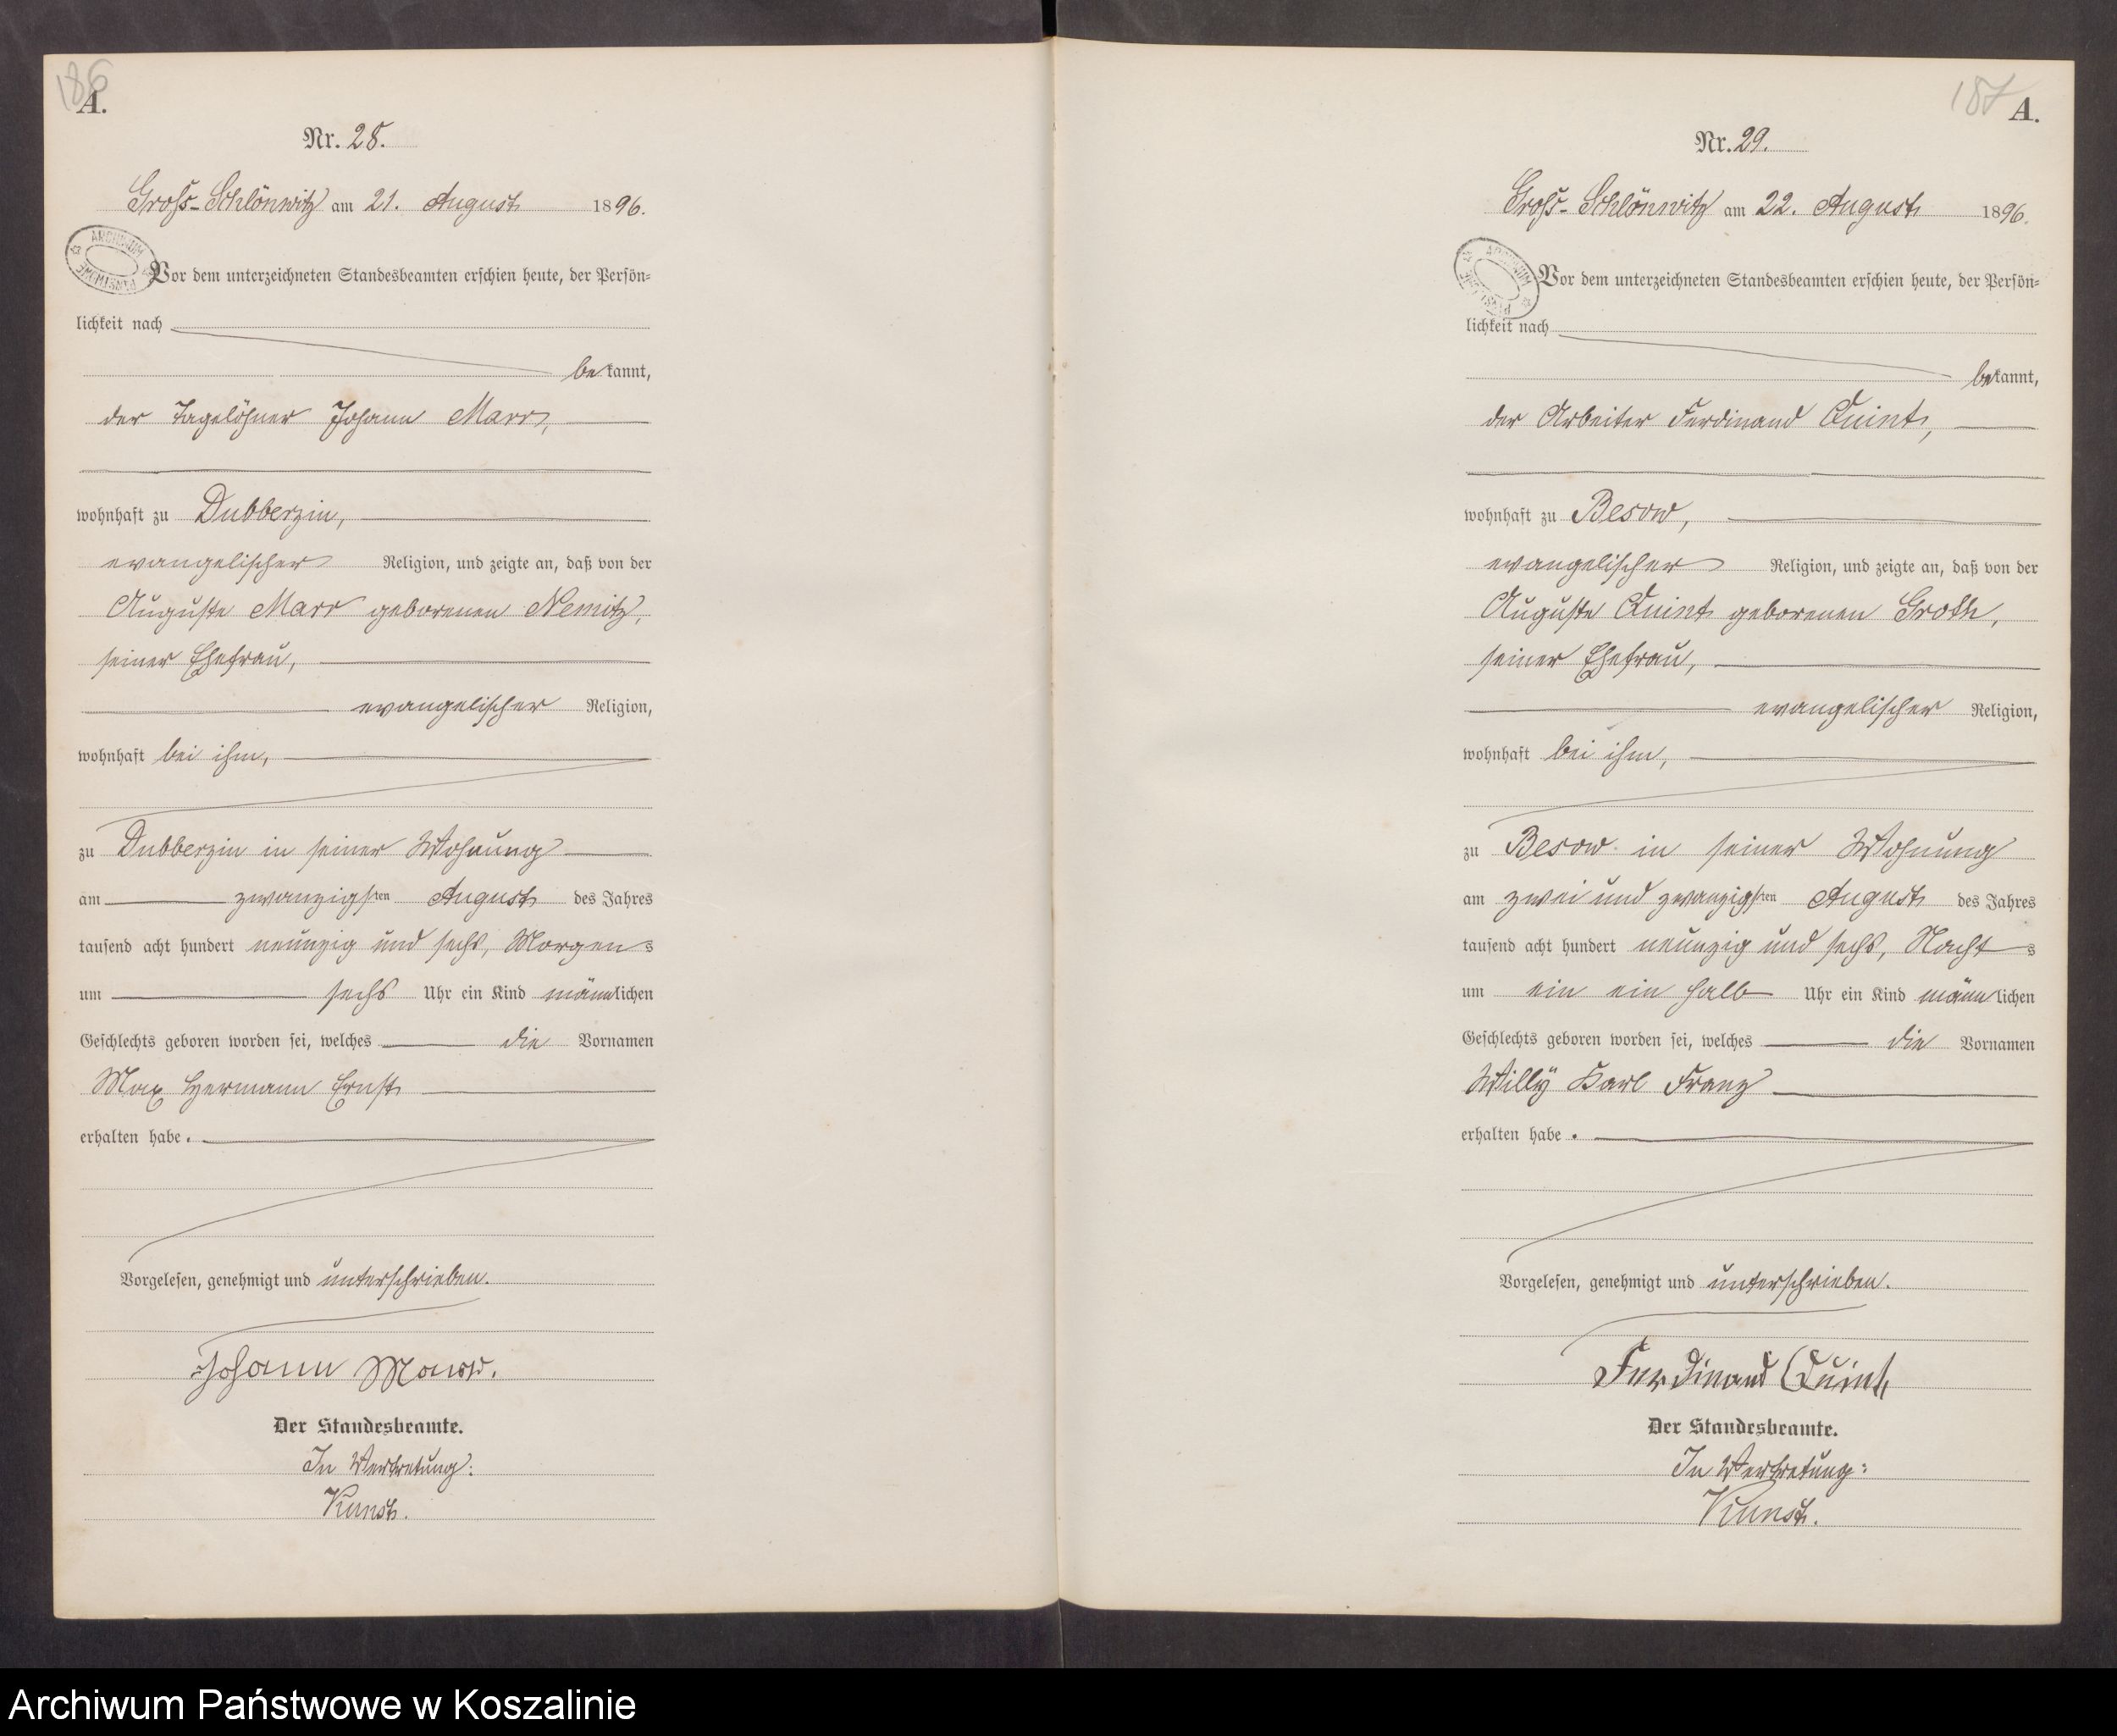 186
A.
Nr. 28.
Groß-Schlönwitz am 21. August 1896.
ARCHIWUM PAŃSTWOWE
Vor dem unterzeichneten Standesbeamten erschien heute, der Persön=
lichkeit nach
bekannt,
der Tagelöhner Johann Marr,
wohnhaft zu Dubberzin,
evangelischer Religion, und zeigte an, daß von der
Auguste Marr geborenen Nemitz,
seiner Ehefrau,
evangelischer Religion,
wohnhaft bei ihm,
zu Dubberzin in seiner Wohnung
am zwanzigsten August des Jahres
tausend acht hundert neunzig und sechs, Morgens
um sechs Uhr ein Kind männlichen
Geschlechts geboren worden sei, welches die Vornamen
Max Hermann Ernst
erhalten habe.
Vorgelesen, genehmigt und unterschrieben.
Johann Marr.
Der Standesbeamte.
In Vertretung:
Kunst.
187
A.
Nr. 29.
Groß-Schlönwitz am 22. August 1896.
ARCHIWUM PAŃSTWOWE
Vor dem unterzeichneten Standesbeamten erschien heute, der Persön=
lichkeit nach
bekannt,
der Arbeiter Ferdinand Quint,
wohnhaft zu Besow,
evangelischer Religion, und zeigte an, daß von der
Auguste Quint geborenen Groth,
seiner Ehefrau,
evangelischer Religion,
wohnhaft bei ihm,
zu Besow in seiner Wohnung
am zwei und zwanzigsten August des Jahres
tausend acht hundert neunzig und sechs, Nachts
um ein ein halb Uhr ein Kind männlichen
Geschlechts geboren worden sei, welches die Vornamen
Willÿ Karl Franz
erhalten habe.
Vorgelesen, genehmigt und unterschrieben.
Ferdinand Quint
Der Standesbeamte.
In Vertretung:
Kunst.
Archiwum Państwowe w Koszalinie